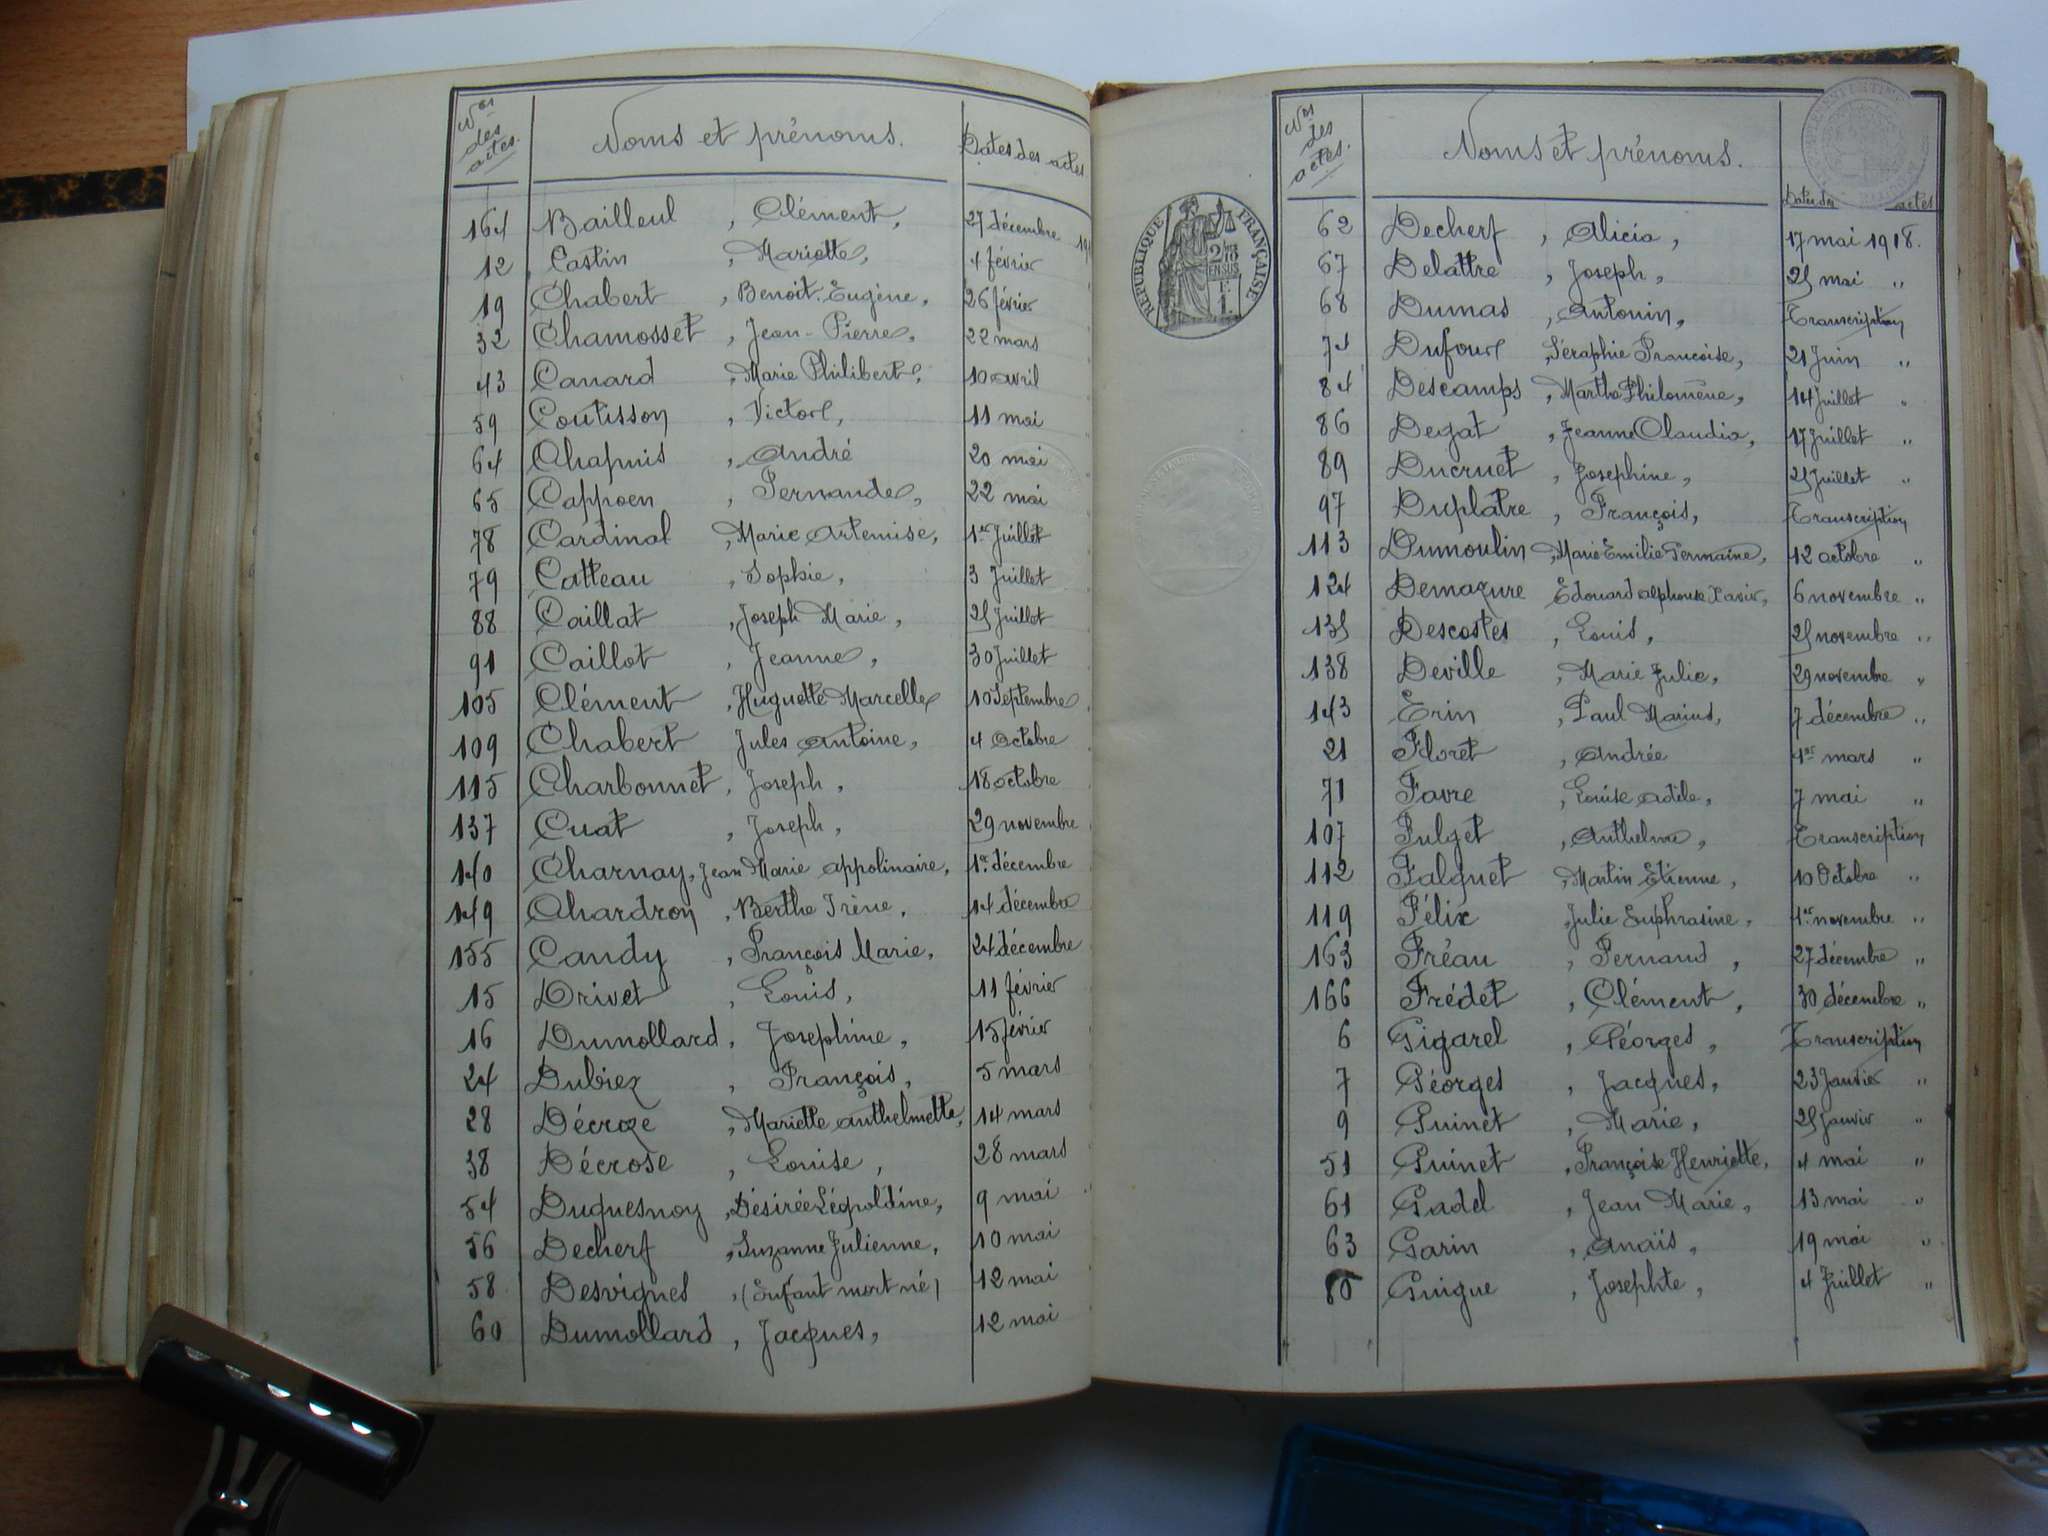 Nos des actes. Noms et prénoms. Dates des actes
164 Bailleul, Clément, 27 décembre 19
12 Castin, Mariette, 4 février
19 Chabert, Benoit Eugène, 26 février
32 Chamosset, Jean-Pierre, 22 mars
43 Canard, Marie Philibert, 10 avril
59 Coutisson, Victor, 11 mai
64 Chapuis, André 20 mai
65 Cappoen, Fernande, 22 mai
78 Cardinal, Marie Artemise, 1er Juillet
79 Catteau, Sophie, 3 Juillet
88 Caillat, Joseph Marie, 25 Juillet
91 Caillot, Jeanne, 30 Juillet
105 Clément, Huguette Marcelle 10 Septembre
109 Chabert Jules Antoine, 4 Octobre
115 Charbonnet, Joseph, 18 octobre
137 Cuat, Joseph, 29 novembre
140 Charnay, Jean Marie Appolinaire, 1er décembre
149 Chardron, Berthe Irène, 14 décembre
155 Candy, François Marie, 24 décembre
15 Drivet, Louis, 11 février
16 Dumollard, Josephine, 15 février
24 Dubiez, François, 5 mars
28 Décroze, Mariette Anthelmette, 14 mars
38 Décrose, Louise, 28 mars
54 Duquesnoy, Désirée Léopoldine, 9 mai
56 Decherf, Suzanne Julienne, 10 mai
58 Desvignes, (Enfant mort né) 12 mai
60 Dumollard, Jacques, 12 mai
Nos des actes. Noms et prénoms. Dates des actes
RÉPUBLIQUE FRANÇAISE
2/10 EN SUS
62 Decherf, Alicia, 17 mai 1918.
67 Delattre, Joseph, 25 mai "
68 Dumas, Antonin, Transcription
74 Dufour, Séraphie Françoise, 21 Juin "
84 Descamps, Marthe Philomène, 14 Juillet "
86 Degat, Jeanne Claudia, 17 Juillet "
89 Ducruet, Josephine, 25 Juillet "
97 Duplatre, François, Transcription
113 Dumoulin, Marie Emilie Germaine, 12 octobre "
124 Demazure Edouard Alphonse Xavier, 6 novembre "
135 Descostes, Louis, 25 novembre "
138 Deville, Marie Julie, 29 novembre "
143 Erin, Paul Marius, 7 décembre "
21 Floret, Andrée 1er mars "
71 Favre, Louise Adèle, 7 mai "
107 Fulget, Anthelme, Transcription
112 Falquet, Martin Etienne, 10 Octobre "
119 Félix, Julie Euphrasine, 1er novembre "
163 Fréau, Fernand, 27 décembre "
166 Frédet, Clément, 30 décembre "
6 Gigarel, Géorges, Transcription
7 Géorges, Jacques, 23 Janvier "
9 Guinet, Marie, 25 Janvier "
51 Guinet, Françoise Henriette, 4 mai "
61 Gadel, Jean Marie, 13 mai "
63 Garin, Anaïs, 19 mai "
80 Guigue, Josephte, 4 Juillet "